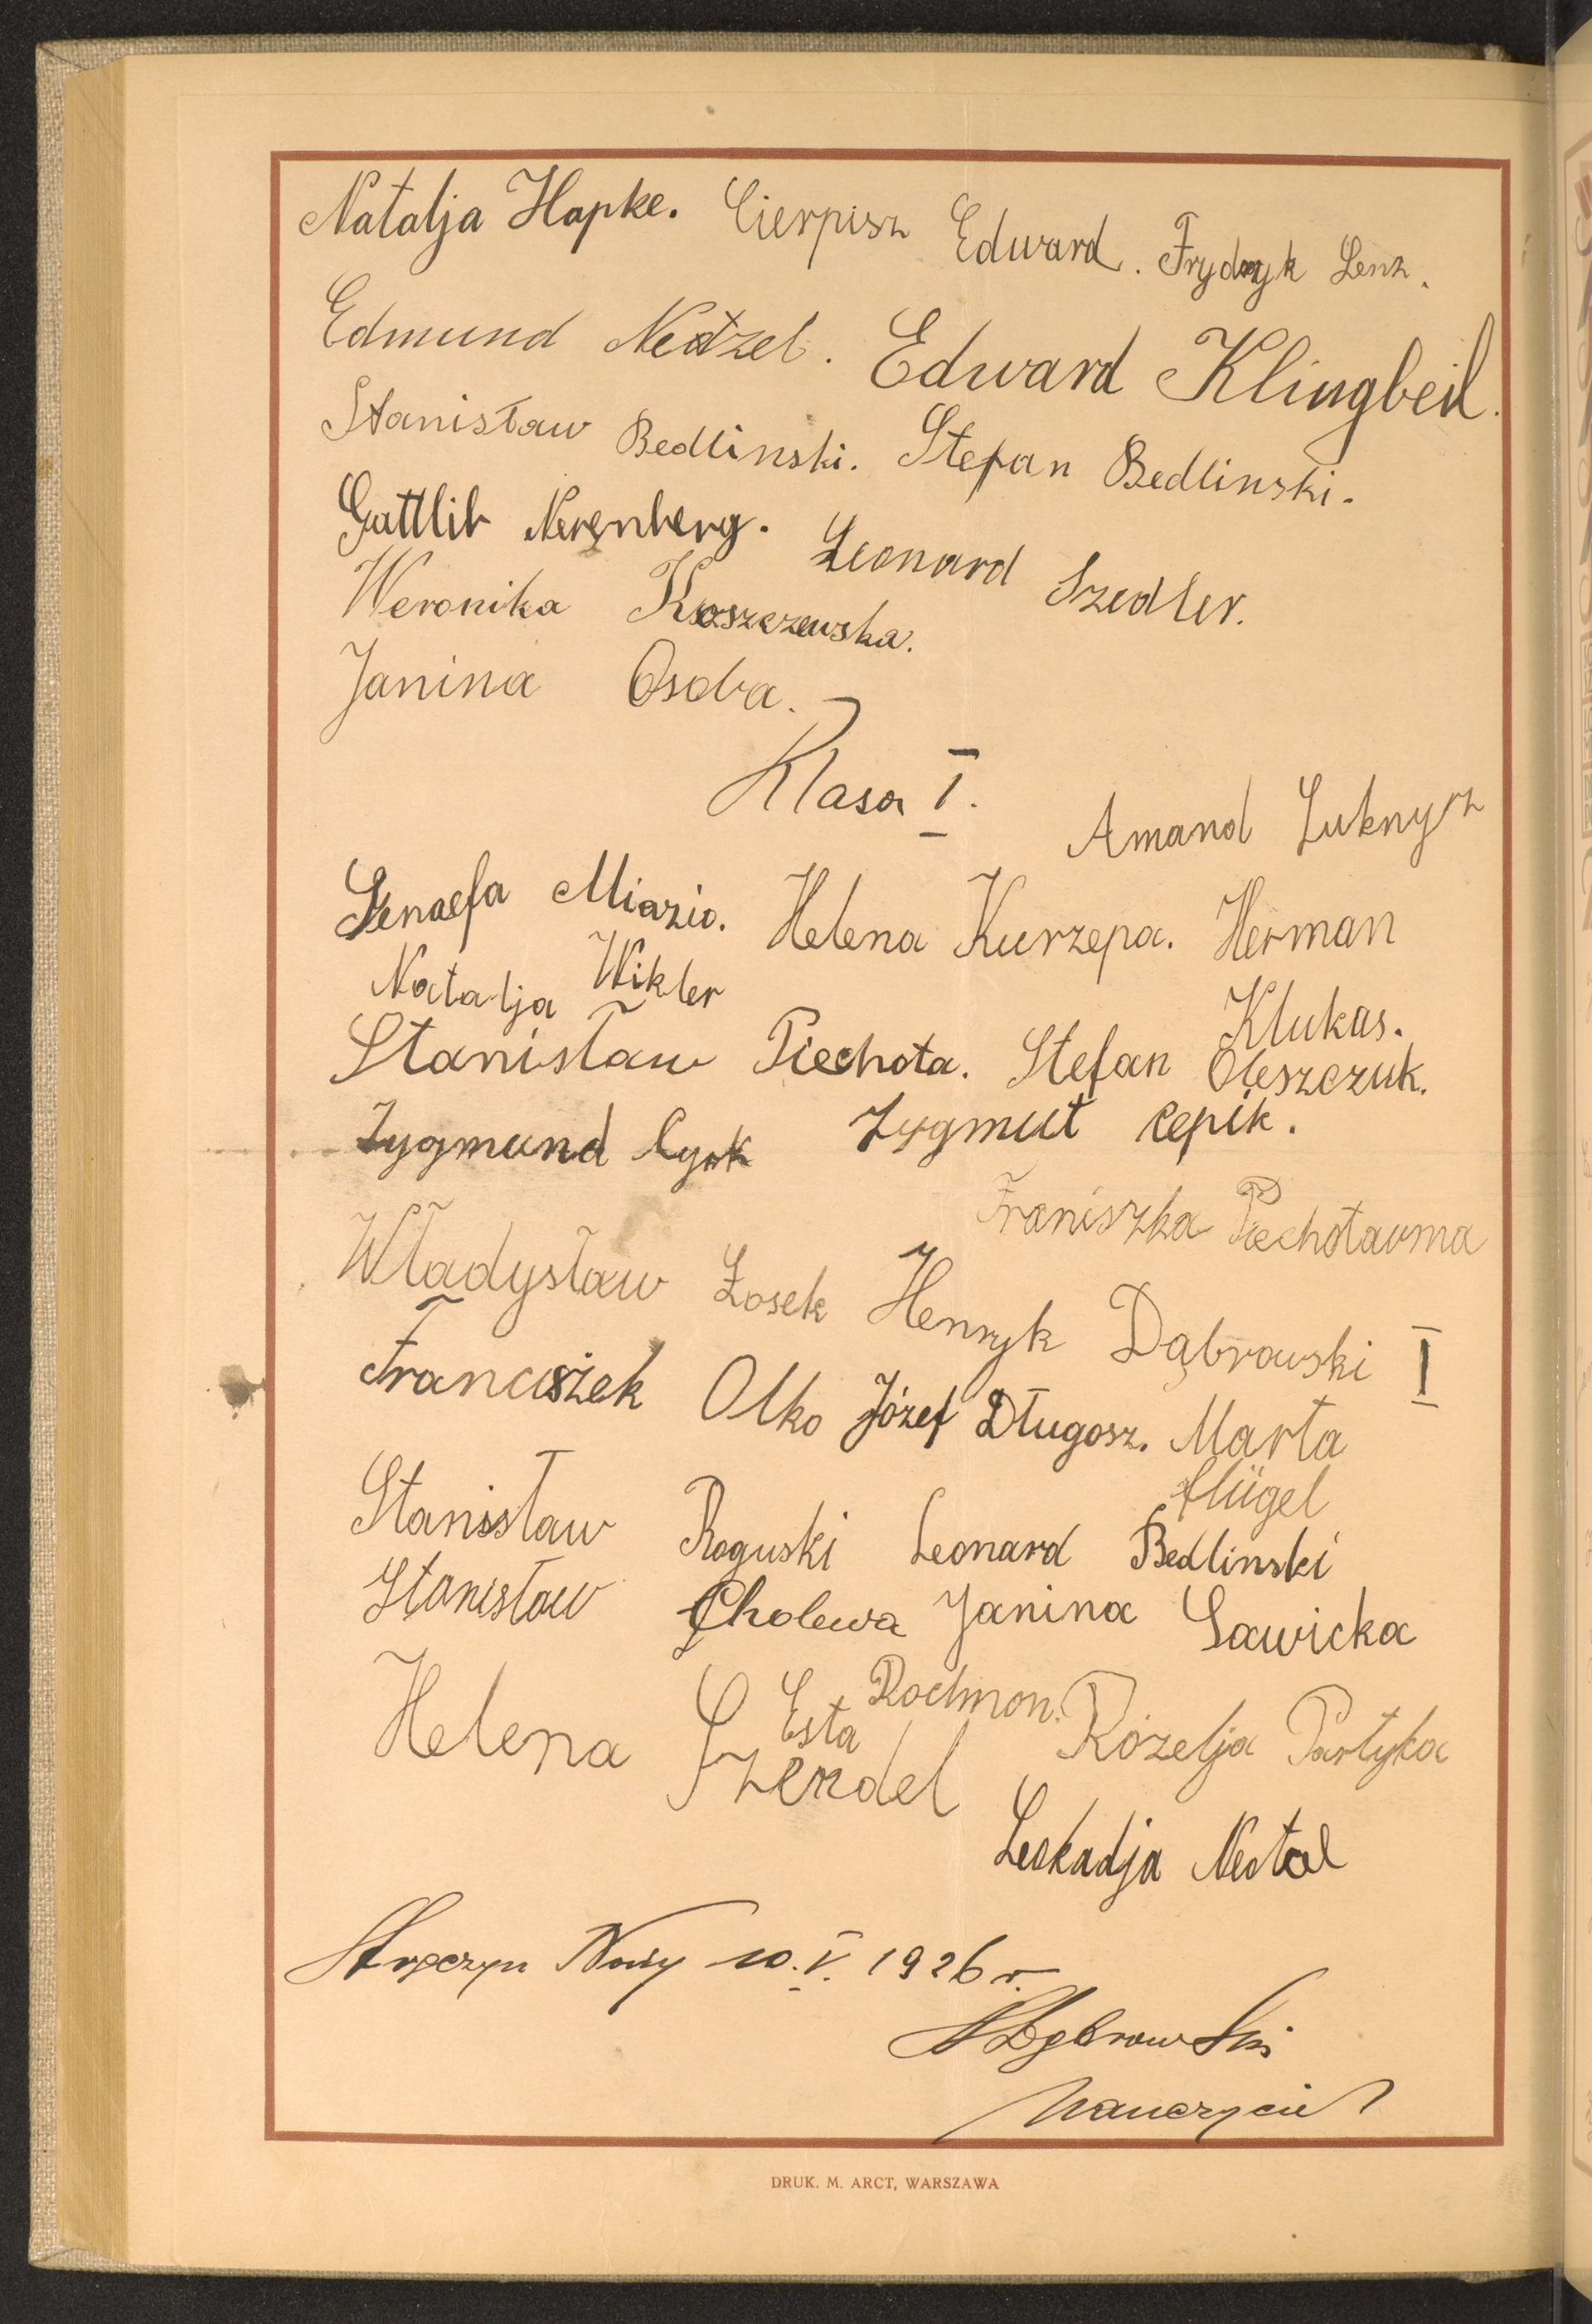 Natalja Hapke. Cierpisz Edward. Frydryk Lenz.
Edmund Netzel. Edward Klingbeil.
Stanisław Bedlinski. Stefan Bedlinski.
Gottlib Nerenberg. Leonard Szedler.
Weronika Koszczewska.
Janina Osoba.
Klasa I.
Amand Luknysz
Genaefa Miazio. Helena Kurzepa. Herman Klukas.
Natalja Wikler
Stanisław Piechota. Stefan Oleszczuk.
Zygmund Cyok Zygmut Cepik.
Franiszka Piechotauma
Władysław Łosek Henryk Dąbrowski I
Franciszek Olko Józef Długosz. Marta flügel
Stanisław Roguski Leonard Bedlinski
Stanisław Cholewa Janina Sawicka
Helena Szendel Esta Rochmon. Rózelja Partyka
Leokadja Nestal
Nowy 10.V. 1926 r.
Dąbrowski
Nauczyciel
DRUK. M. ARCT, WARSZAWA